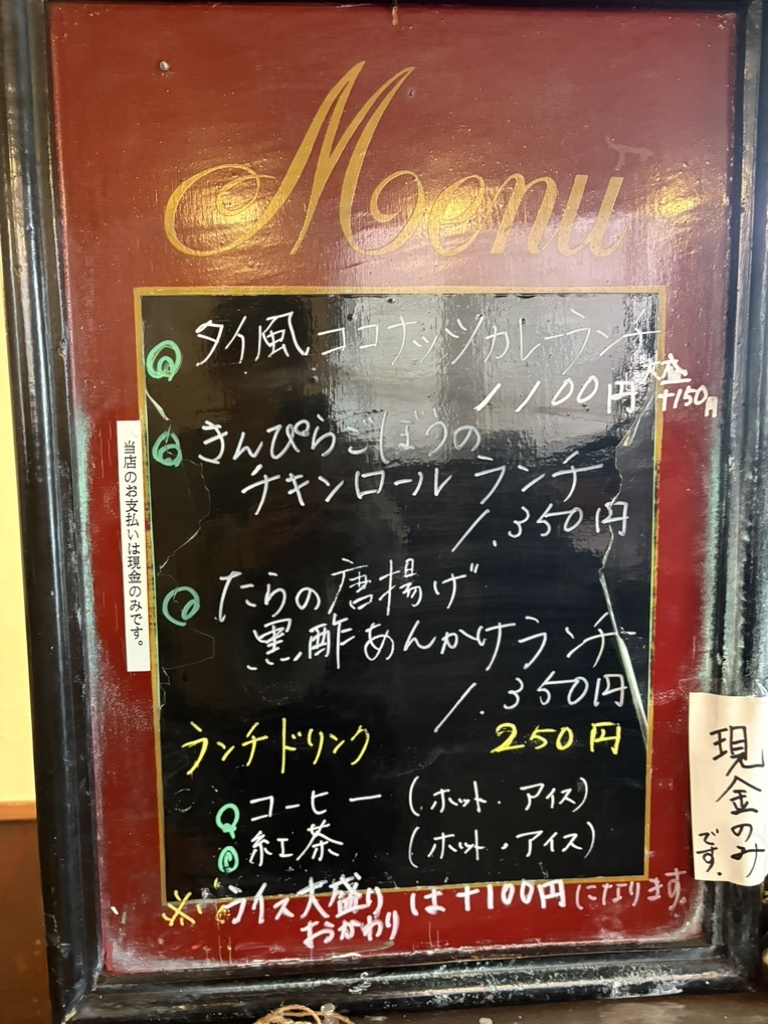 Menu
タイ風ココナッツカレーランチ
1100円 大盛+150円
きんぴらごぼうの
チキンロールランチ
1.350円
たらの唐揚げ
黒酢あんかけランチ
1.350円
ランチドリンク 250円
コーヒー (ホット・アイス)
紅茶 (ホット・アイス)
※ライス大盛り は+100円になります。
おかわり
当店のお支払いは現金のみです。
現金のみ
です.